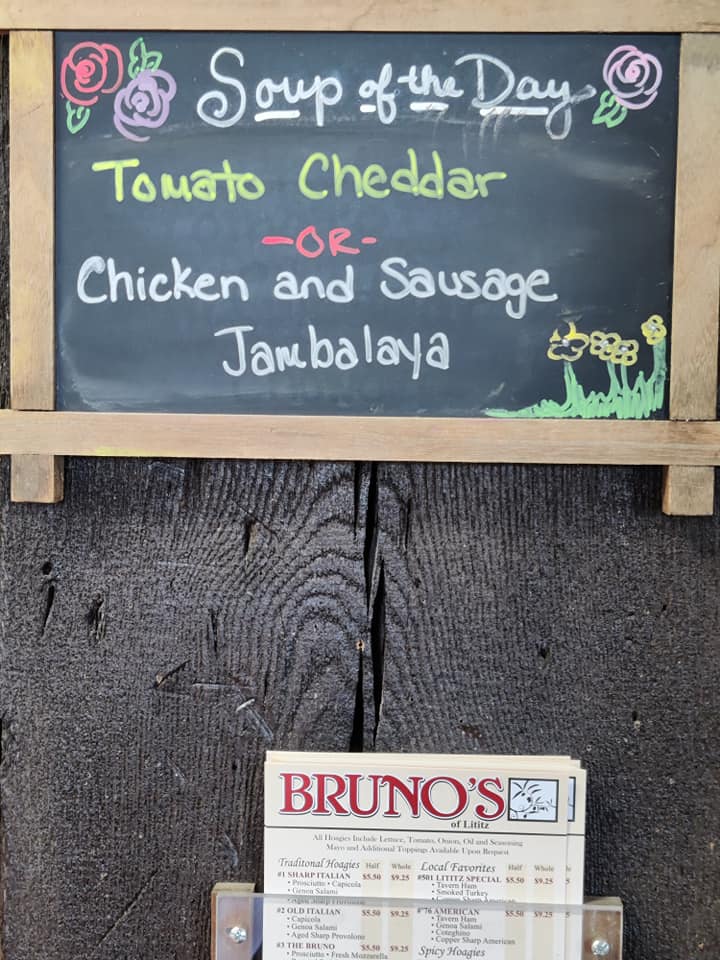 Soup of the Day
Tomato Cheddar
-OR-
Chicken and Sausage
Jambalaya
BRUNO'S
of Lititz
All Hoagies Include Lettuce, Tomato, Onion, Oil and Seasoning
Mayo and Additional Toppings Available Upon Request
Traditonal Hoagies Half Whole
#1 SHARP ITALIAN $5.50 $9.25
• Prosciutto • Capicola
• Genoa Salami
• Aged Sharp Provolone
#2 OLD ITALIAN $5.50 $9.25
• Capicola
• Genoa Salami
• Aged Sharp Provolone
#3 THE BRUNO $5.50 $9.25
• Prosciutto • Fresh Mozzarella
Local Favorites Half Whole
#501 LITITZ SPECIAL $5.50 $9.25
• Tavern Ham
• Smoked Turkey
• Copper Sharp American
#76 AMERICAN $5.50 $9.25
• Tavern Ham
• Genoa Salami
• Coteghino
• Copper Sharp American
Spicy Hoagies